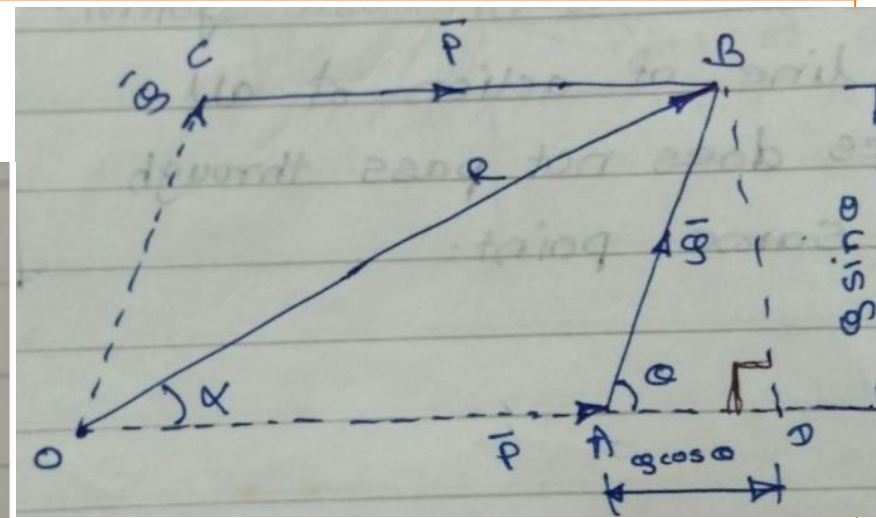 C
P̅
B
Q̅
R
Q̅
Q sinθ
α
θ
O
P̅
A
D
Q cosθ